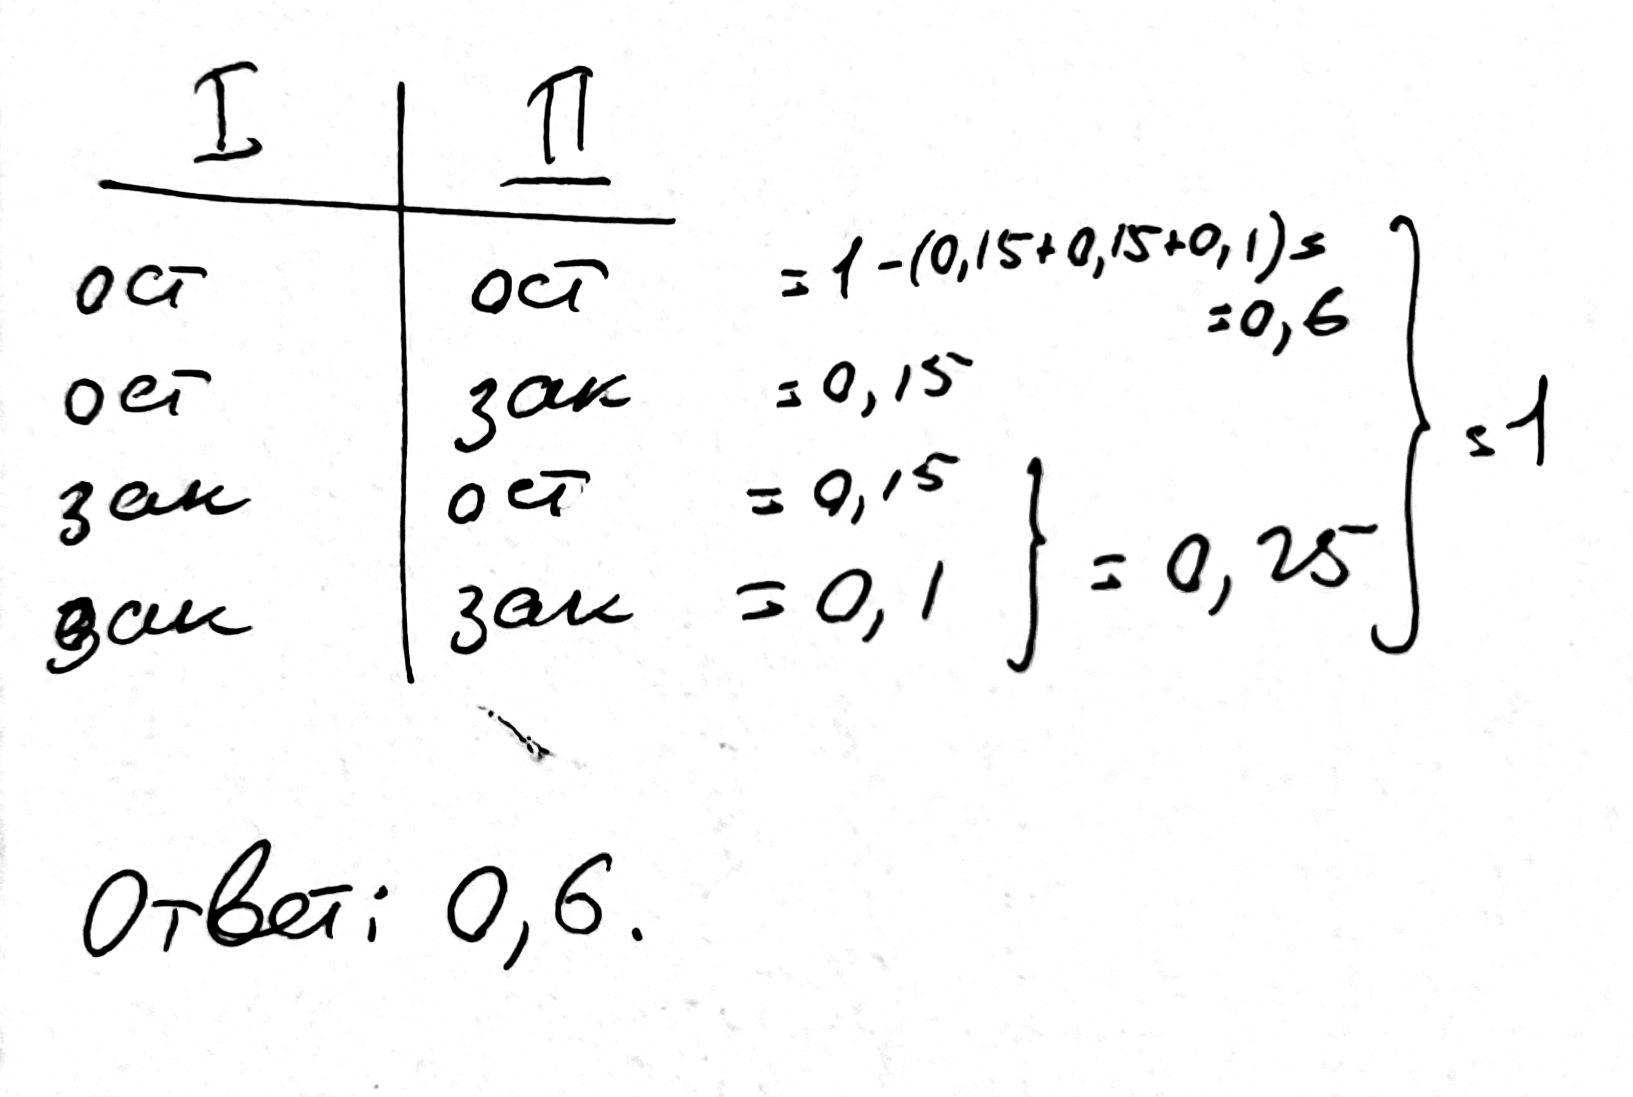 I П
ост ост = 1 - (0,15 + 0,15 + 0,1) =
= 0,6
ост зак = 0,15
зак ост = 0,15
зак зак = 0,1
= 0,25
= 1
Ответ: 0,6.